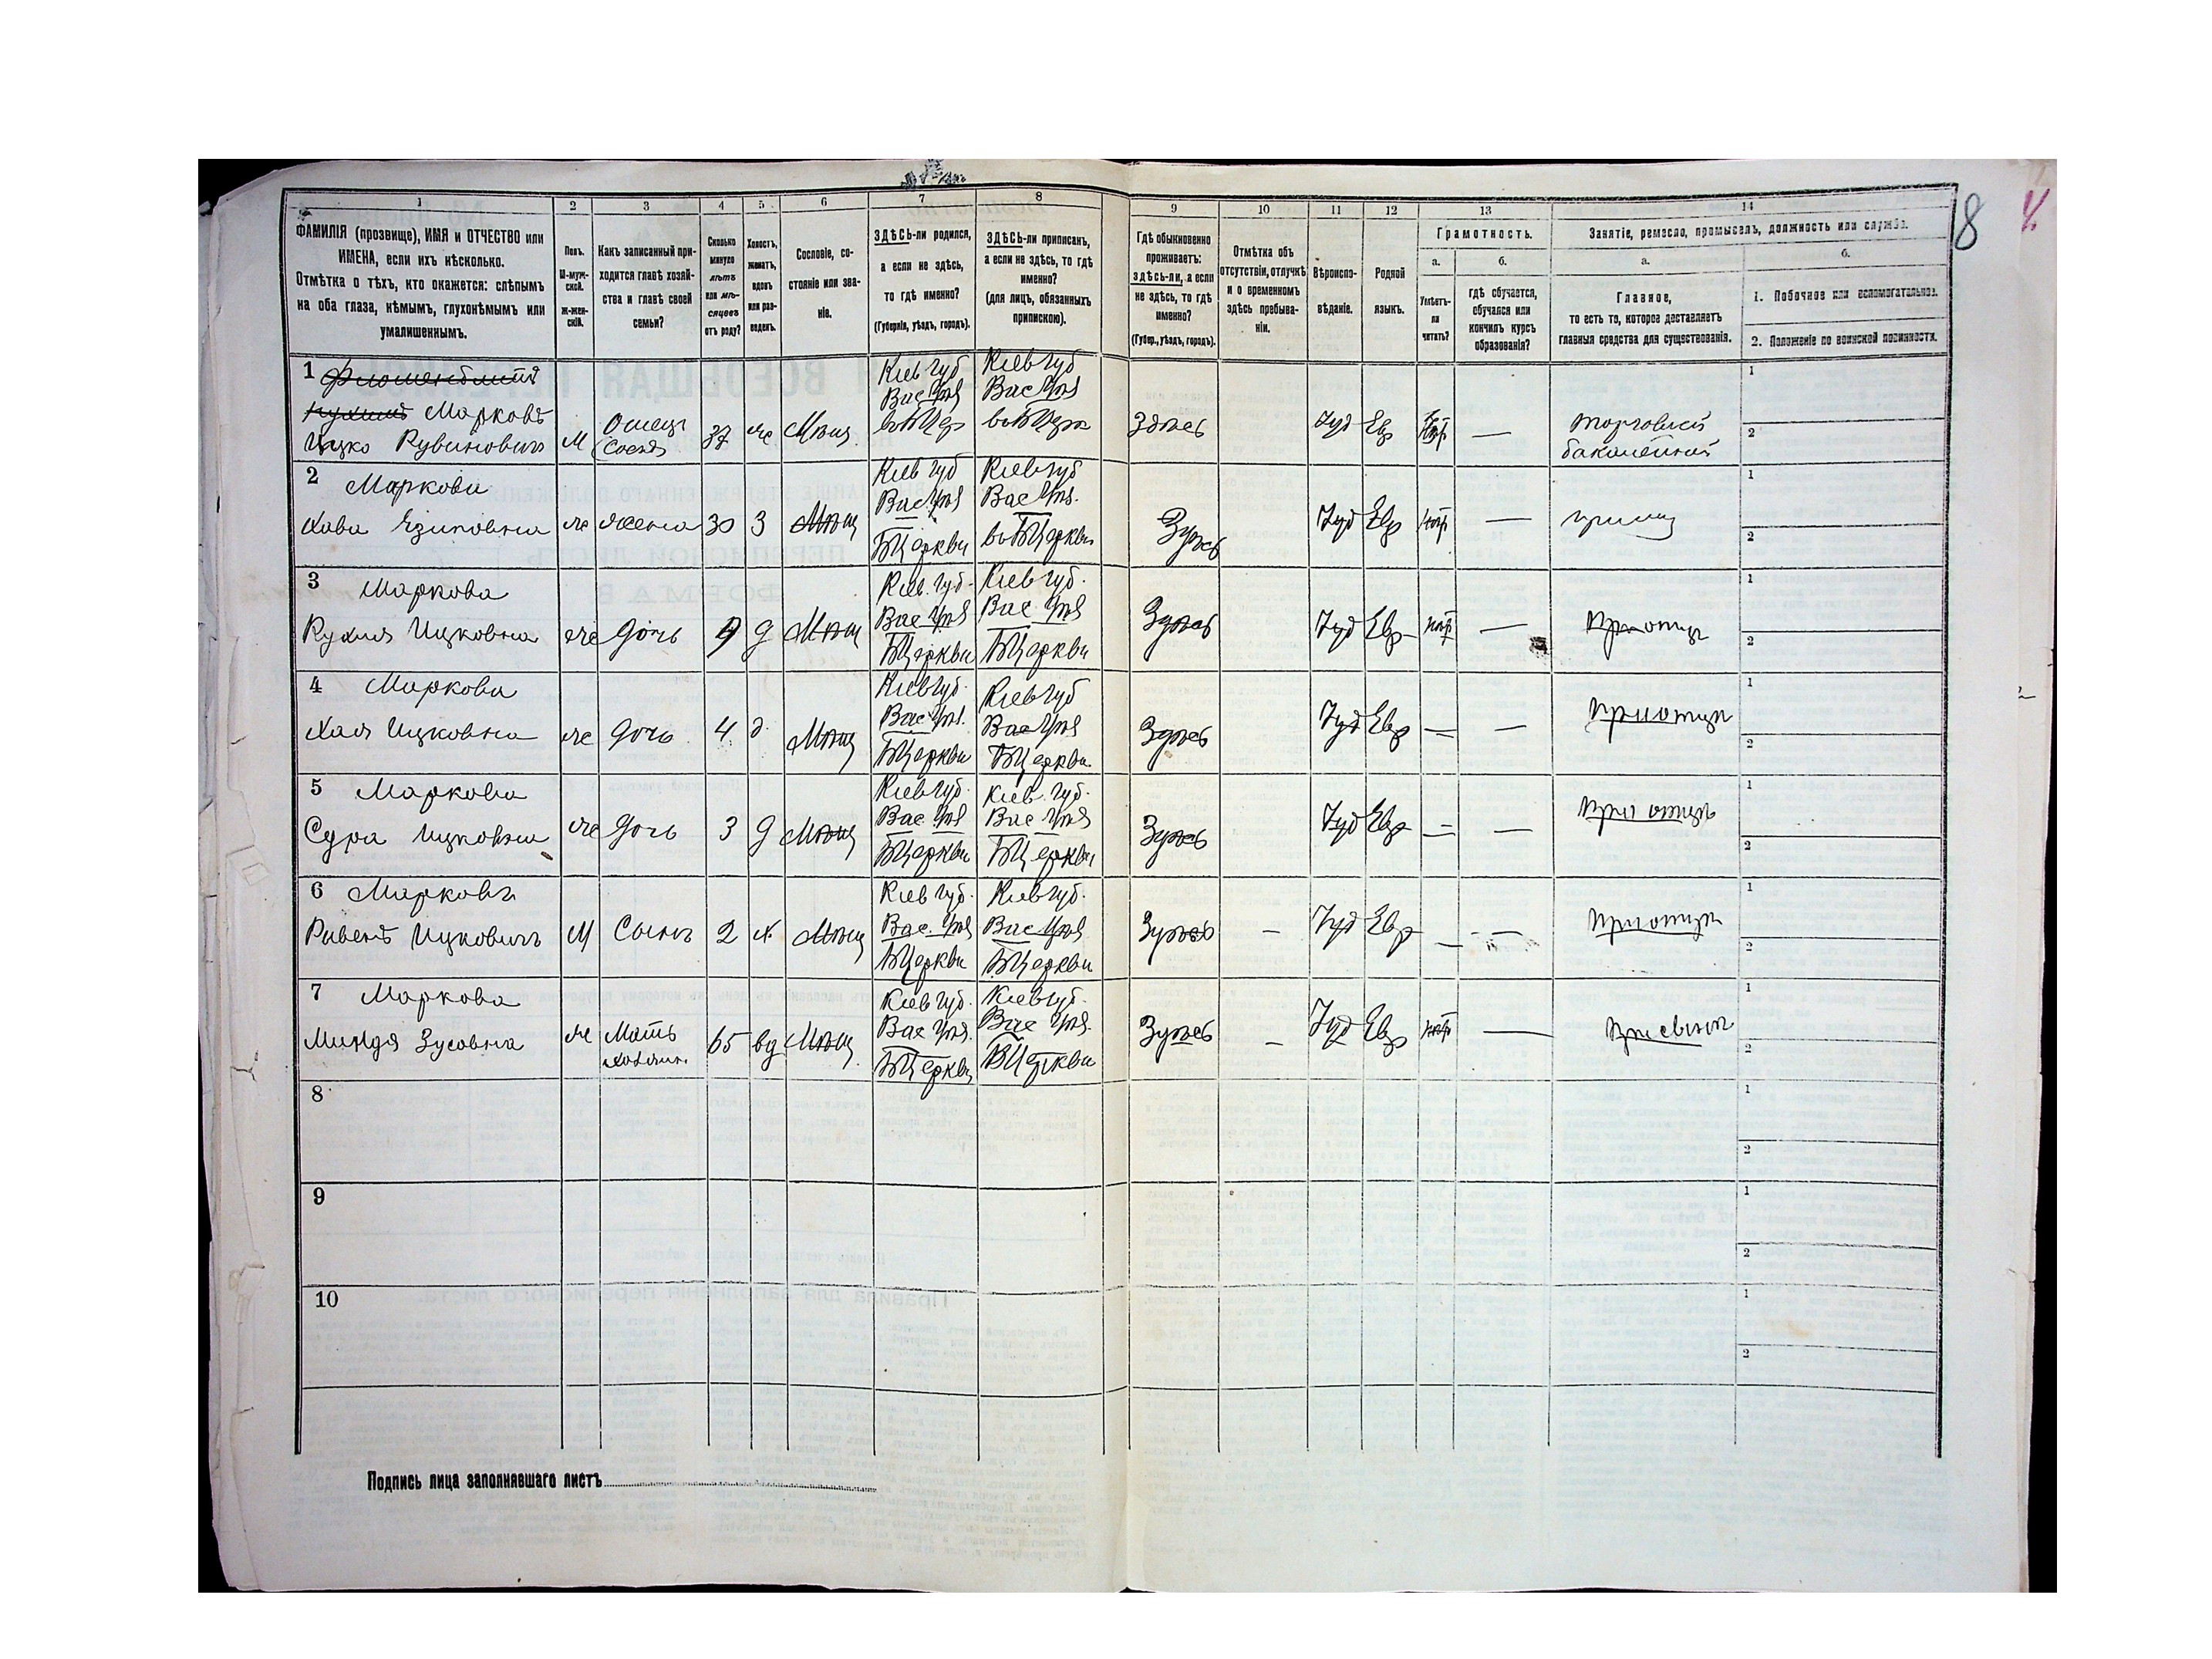 1 2 3 4 5 6 7 8 9 10 11 12 13 14
ФАМИЛІЯ (прозвище), ИМЯ и ОТЧЕСТВО или
ИМЕНА, если ихъ нѣсколько.
Отмѣтка о тѣхъ, кто окажется: слѣпымъ
на оба глаза, нѣмымъ, глухонѣмымъ или
умалишеннымъ.
Полъ.
М-муж-
ской.
Ж-жен-
скій.
Какъ записанный при-
ходится главѣ хозяй-
ства и главѣ своей
семьи?
Сколько
минуло
лѣтъ
или мѣ-
сяцевъ
отъ роду?
Холостъ,
женатъ,
вдовъ
или раз-
веденъ.
Сословіе, со-
стояніе или зва-
ніе.
ЗДѢСЬ-ли родился,
а если не здѣсь,
то гдѣ именно?
(Губернія, уѣздъ, городъ).
ЗДѢСЬ-ли приписанъ,
а если не здѣсь, то гдѣ
именно?
(для лицъ, обязанныхъ
припискою).
Гдѣ обыкновенно
проживаетъ:
здѣсь-ли, а если
не здѣсь, то гдѣ
именно?
(Губер., уѣздъ, городъ).
Отмѣтка объ
отсутствіи, отлучкѣ
и о временномъ
здѣсь пребыва-
ніи.
Вѣроиспо-
вѣданіе.
Родной
языкъ.
Грамотность.
а.
Умѣетъ-
ли
читать?
б.
гдѣ обучается,
обучался или
кончилъ курсъ
образованія?
Занятіе, ремесло, промыселъ, должность или служба.
а.
Главное,
то есть то, которое доставляетъ
главныя средства для существованія.
б.
1. Побочное или вспомогательное.
2. Положеніе по воинской повинности.
8
1
Марковъ
Ицко Рувиновичъ М 37 же Мѣщ
Кіев губ
Вас Уѣз
Кіев губ
Вас Уѣз
Здѣсь Іуд Евр —
торговля
бакалейная
1
2
2 Маркова
Хава жена 30 З Мѣщ
Кіев губ
Вас. Уѣз
БЦеркви
Кіев губ
Вас Уѣз.
въ БЦеркви
Здѣсь Іуд Евр нѣт —
1
2
3 Маркова
Рухля Ицковна же Дочь 9 д Мѣщ
Кіев. губ.
Вас Уѣз
БЦеркви
Кіев губ.
Вас Уѣз
БЦеркви
Здѣсь Іуд Евр нѣт — При отцѣ
1
2
4 Маркова
Хая Ицковна же Дочь 4 д. Мѣщ
Кіев губ.
Вас Уѣз.
БЦеркви
Кіев губ
Вас Уѣз
БЦеркви.
Здѣсь Іуд Евр — — При отцѣ
1
2
5 Маркова
Сура Ицковна же Дочь 3 д Мѣщ
Кіев губ.
Вас Уѣз
БЦеркви
Кіев. губ.
Вас Уѣз
БЦеркви
Здѣсь Іуд Евр — — При отцѣ
1
2
6 Марковъ
Рувенъ Ицковичъ М Сынъ 2 х. Мѣщ
Кіев губ.
Вас. Уѣз
БЦеркви
Кіев губ.
Вас Уѣз
БЦеркви
Здѣсь — Іуд Евр — — При отцѣ
1
2
7 Маркова
Миндя Зусовна же Мать 65 вд Мѣщ
Кіев губ.
Вас Уѣз.
БЦеркви
Кіев губ.
Вас Уѣз.
БЦеркви
Здѣсь — Іуд Евр нѣт — При сынѣ
1
2
8
1
2
9
1
2
10
1
2
Подпись лица заполнявшаго листъ